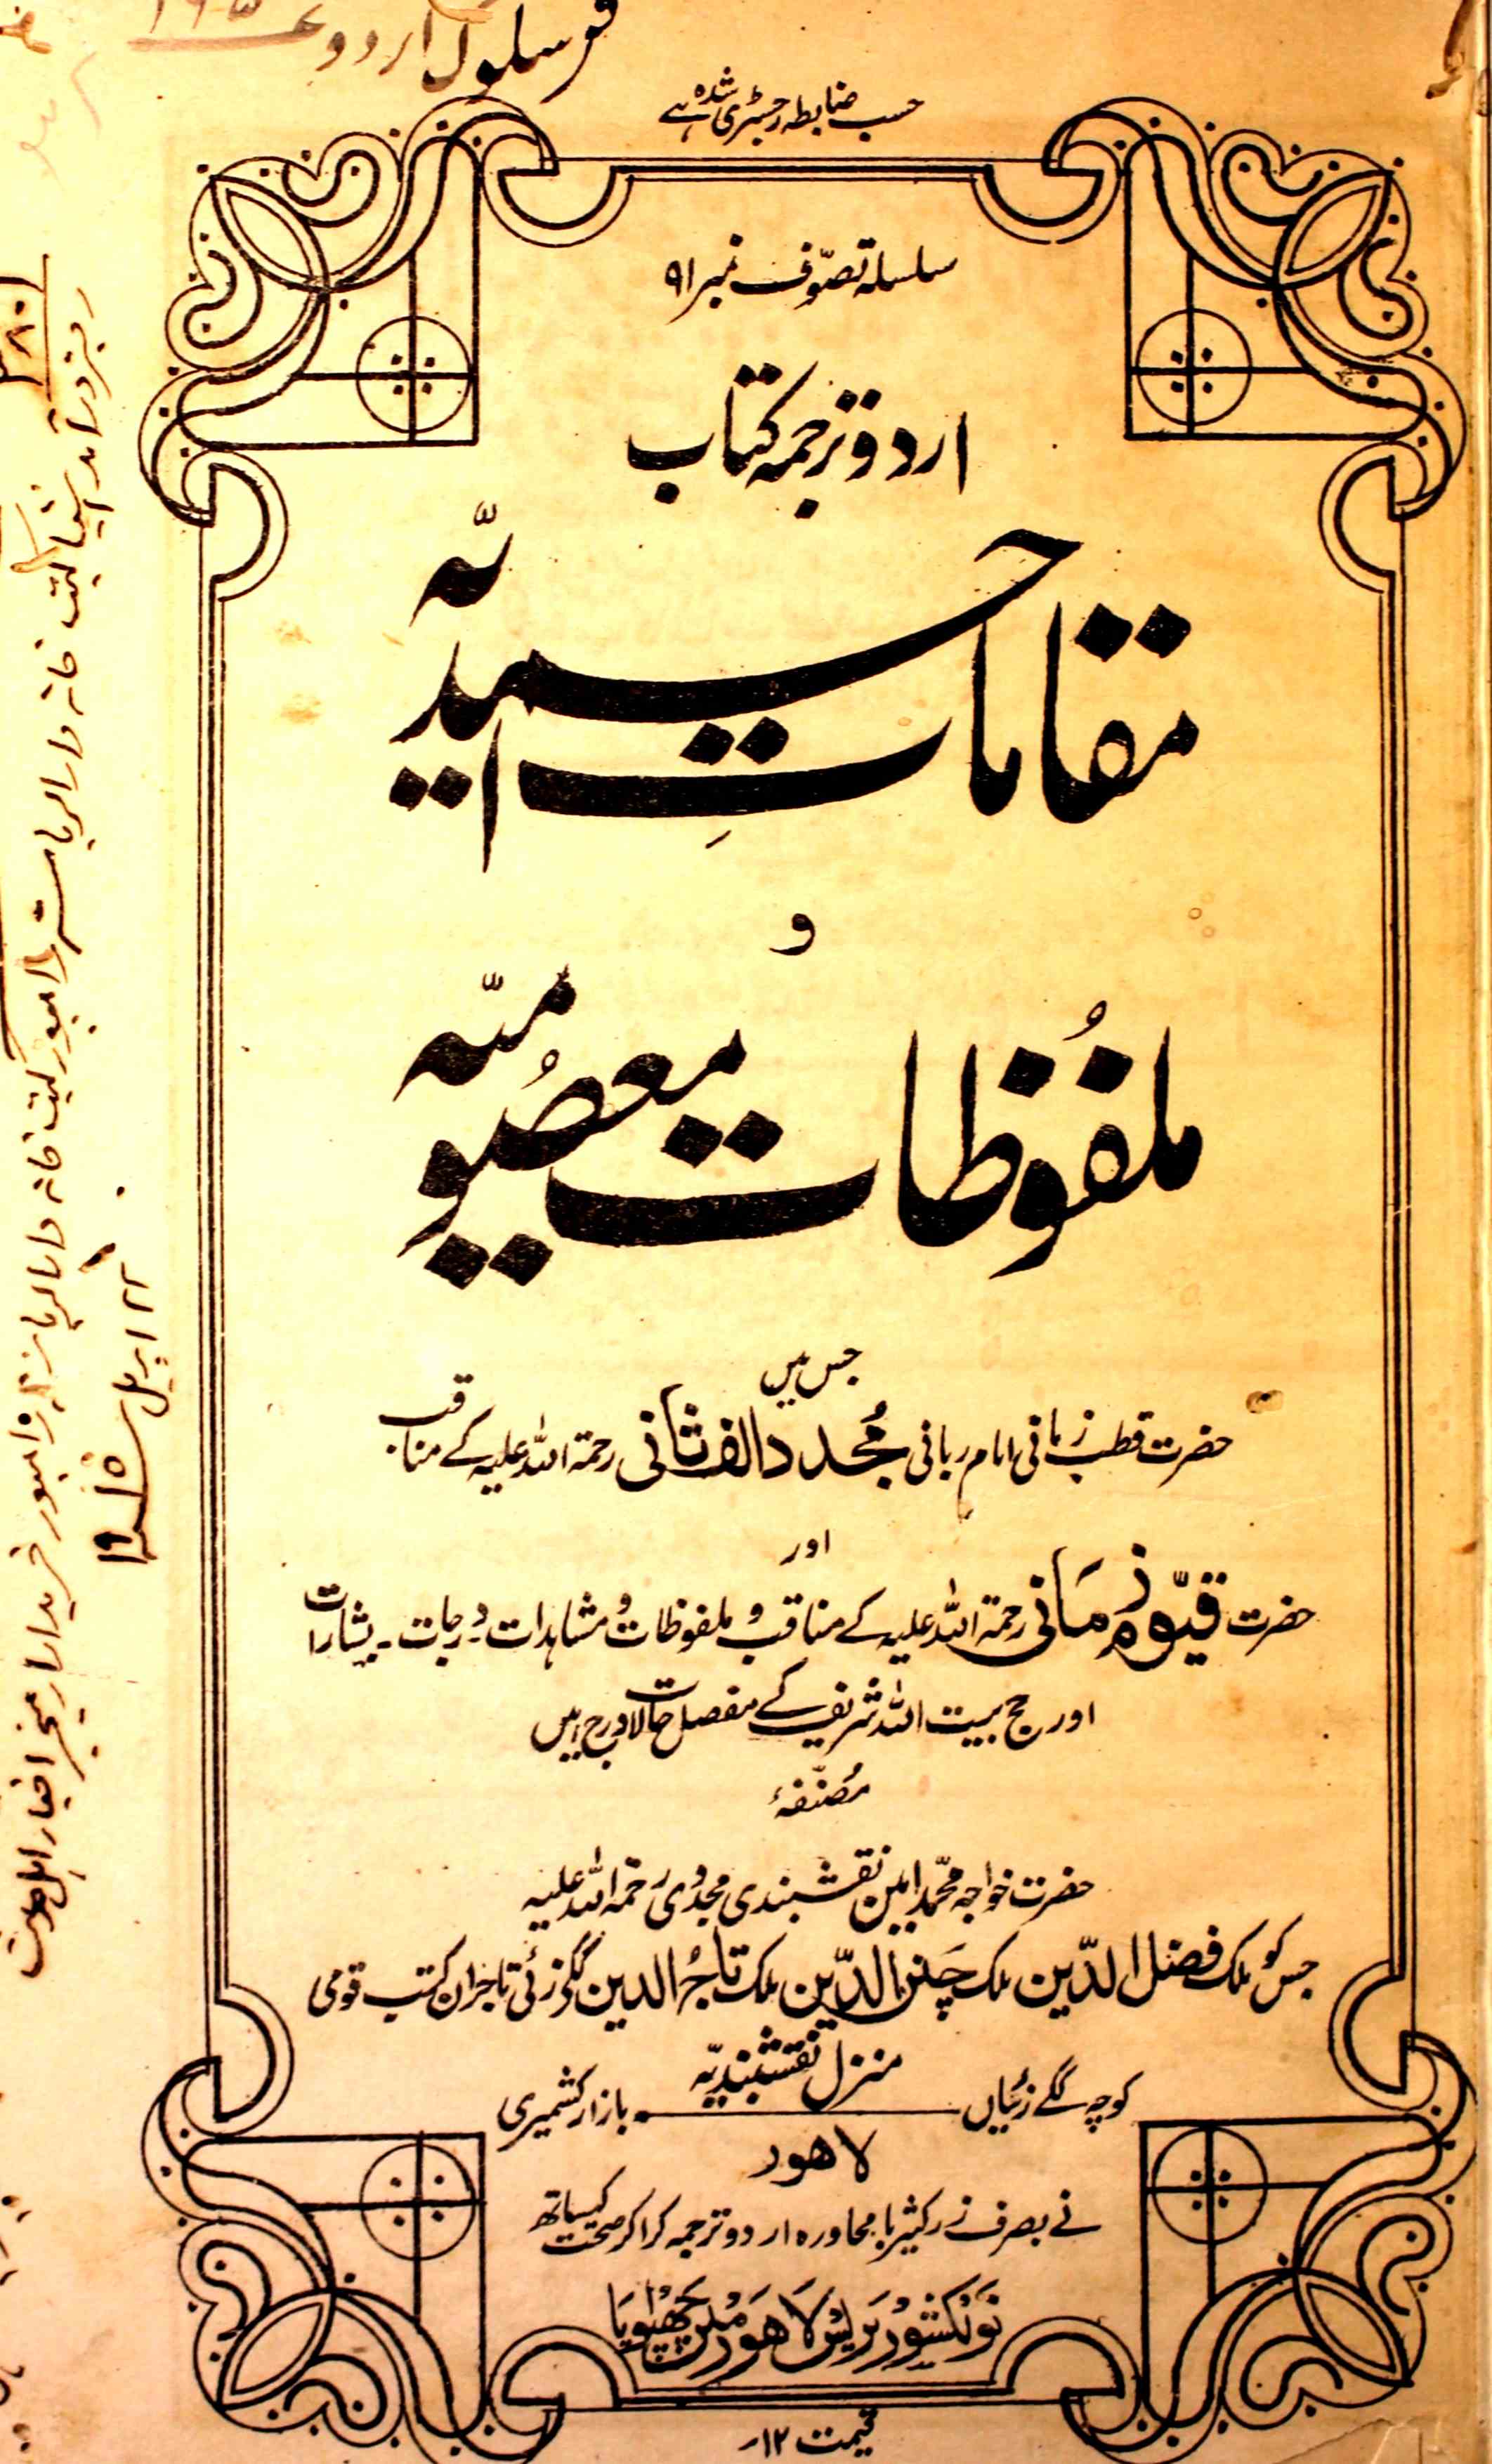 سلوک اردو
حسب ضابطہ رجسٹری شدہ ہے
سلسلہ تصوّف نمبر ۹۱
اردو ترجمہ کتاب
مقاماتِ احمدیّہ
و
ملفُوظات معصُومیّہ
جس میں
حضرت قطب زمانی امام ربانی مُجدد الف ثانی رحمۃ اللہ علیہ کے مناقب
اور
حضرت قیّوم زمَانی رحمۃ اللہ علیہ کے مناقب و ملفوظات و مشاہدات و درجات ۔ بشارات
اور حج بیت اللہ شریف کے مفصل حالات درج ہیں
مُصنّفہٴ
حضرت خواجہ محمّد امین نقشبندی مجددی رحمۃ اللہ علیہ
جس کو ملک فضل الدّین ملک چنن الدّین ملک تاجُ الدین ککے زئی تاجران کتب قومی
منزل نقشبندیّہ
کوچہ ککے زئیاں ــــ بازار کشمیری
لاهور
نے بصرف زر کثیر با محاورہ اردو ترجمہ کرا کر صحت کیساتھ
نَوَلکشور پریس لاهور میں چھپوایا
قیمت ۱۲؍
۲۲ اپریل